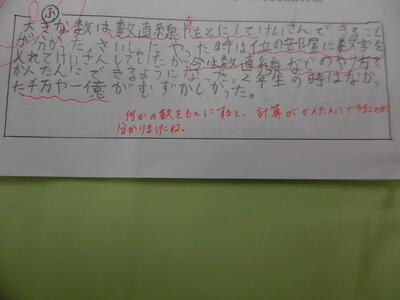 大きな数は数直線をもとにしてけいさんできること
が分かった。さいしょにやった時は一位の部屋に数字を
入れてけいさんしていたが今は数直線などのやり方で
かんたんにできるようになった。2年生の時はなかっ
た千万や一億がむずかしかった。
何かの数をもとにすると、計算がかんたんにできることが
分かりましたね。